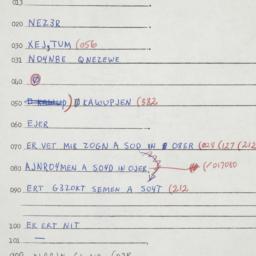 013
020 NEZ3R
030 XEJ,TUM (056
031 NO4NBE QNEZEWE
040 Ø
050 KAWUPJEN (382
060 EJER
070 ER VET MIR ZOGN A SOD IN 086R (028 (127 (212
080 AJNRO4MEN A SO4D IN OJER
090 ERT G3ZOKT SEMEN A SO4T (212
100 ER ERT NIT
101 —